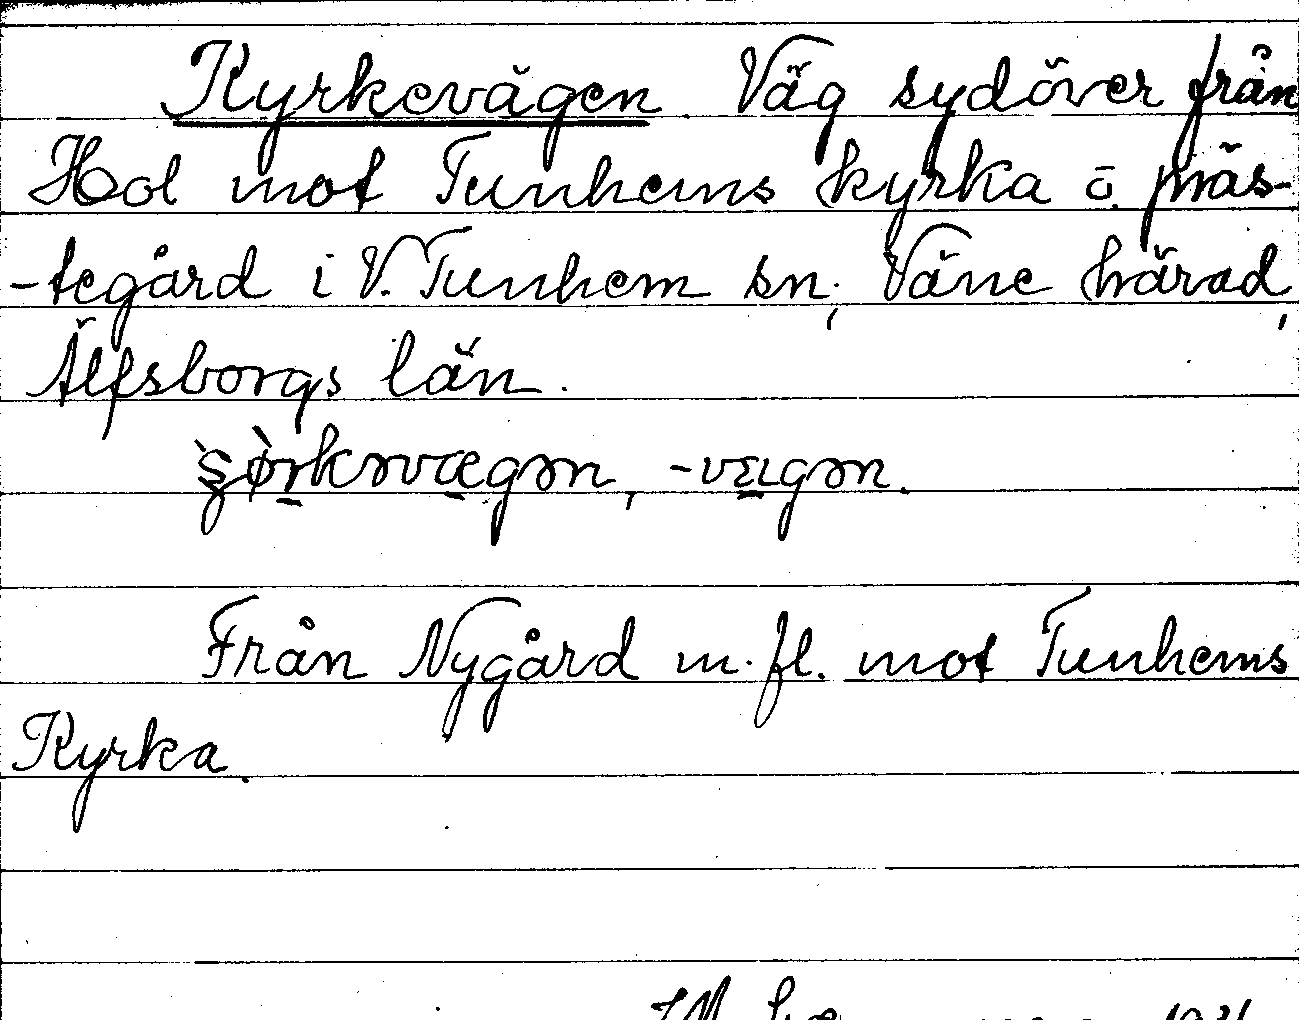 Kyrkevägen Väg sydöver från
Hol mot Tunhems kyrka o. präs-
-tegård i V. Tunhem sn, Väne härad,
Älfsborgs län.
-vægən.
Från Nygård m. fl. mot Tunhems
Kyrka.